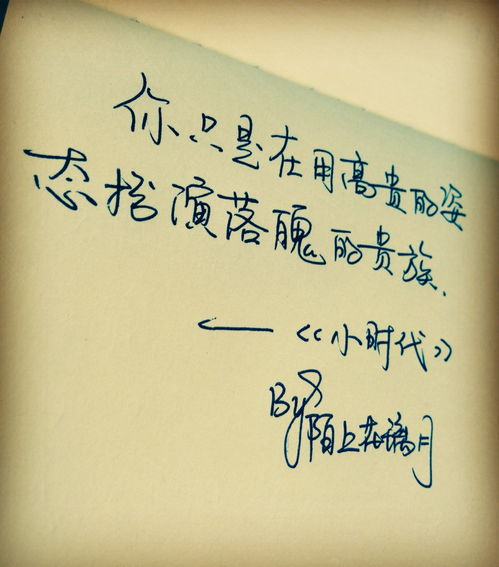 你只是在用高贵的姿
态扮演落魄的贵族.
——《小时代》
By 陌上